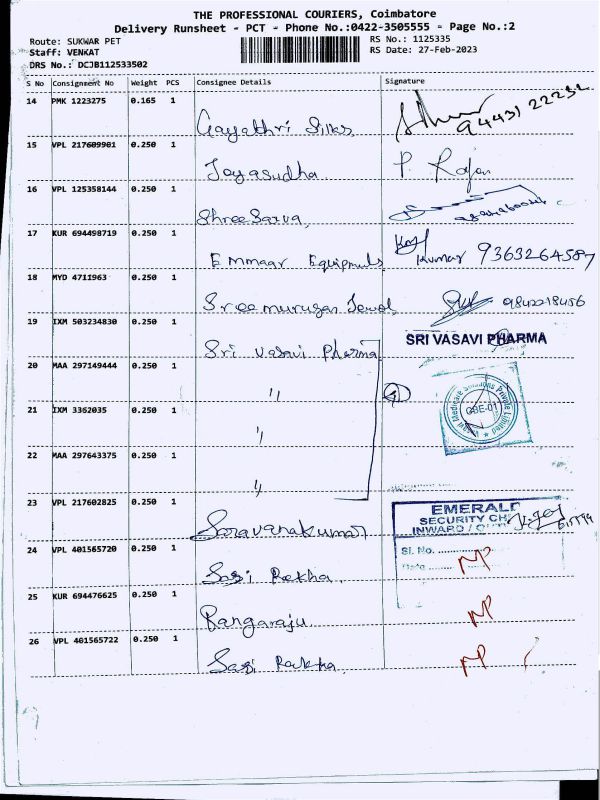 THE PROFESSIONAL COURIERS, Coimbatore
Delivery Runsheet - PCT - Phone No.:0422-3505555 - Page No.:2
Route: SUKWAR PET
RS No.: 1125335
Staff: VENKAT
RS Date: 27-Feb-2023
DRS No.: DCJB112533502
S No Consignment No Weight PCS Consignee Details Signature
14 PMK 1223275 0.165 1
Gayathri Silks
15 VPL 217609901 0.250 1
Jayasudha P. Rajan
16 VPL 125358144 0.250 1
Shree Sarva
17 KUR 694498719 0.250 1
Emmaar Equipmnts Kumar 9363264587
18 MYD 4711963 0.250 1
Sree murugan Jewel 9842218456
19 IXM 503234830 0.250 1
Sri Vasavi Pharma SRI VASAVI PHARMA
20 MAA 297149444 0.250 1
" 4
21 IXM 3362035 0.250 1
" CBE-01
22 MAA 297643375 0.250 1
"
23 VPL 217602825 0.250 1
Saravanakumar
EMERALD
SECURITY CH
INWARD /
24 VPL 401565720 0.250 1
Sl. No.
Date
Sasi Rekha NP
25 KUR 694476625 0.250 1
Rangaraju NP
26 VPL 401565722 0.250 1
Sasi Rekha NP